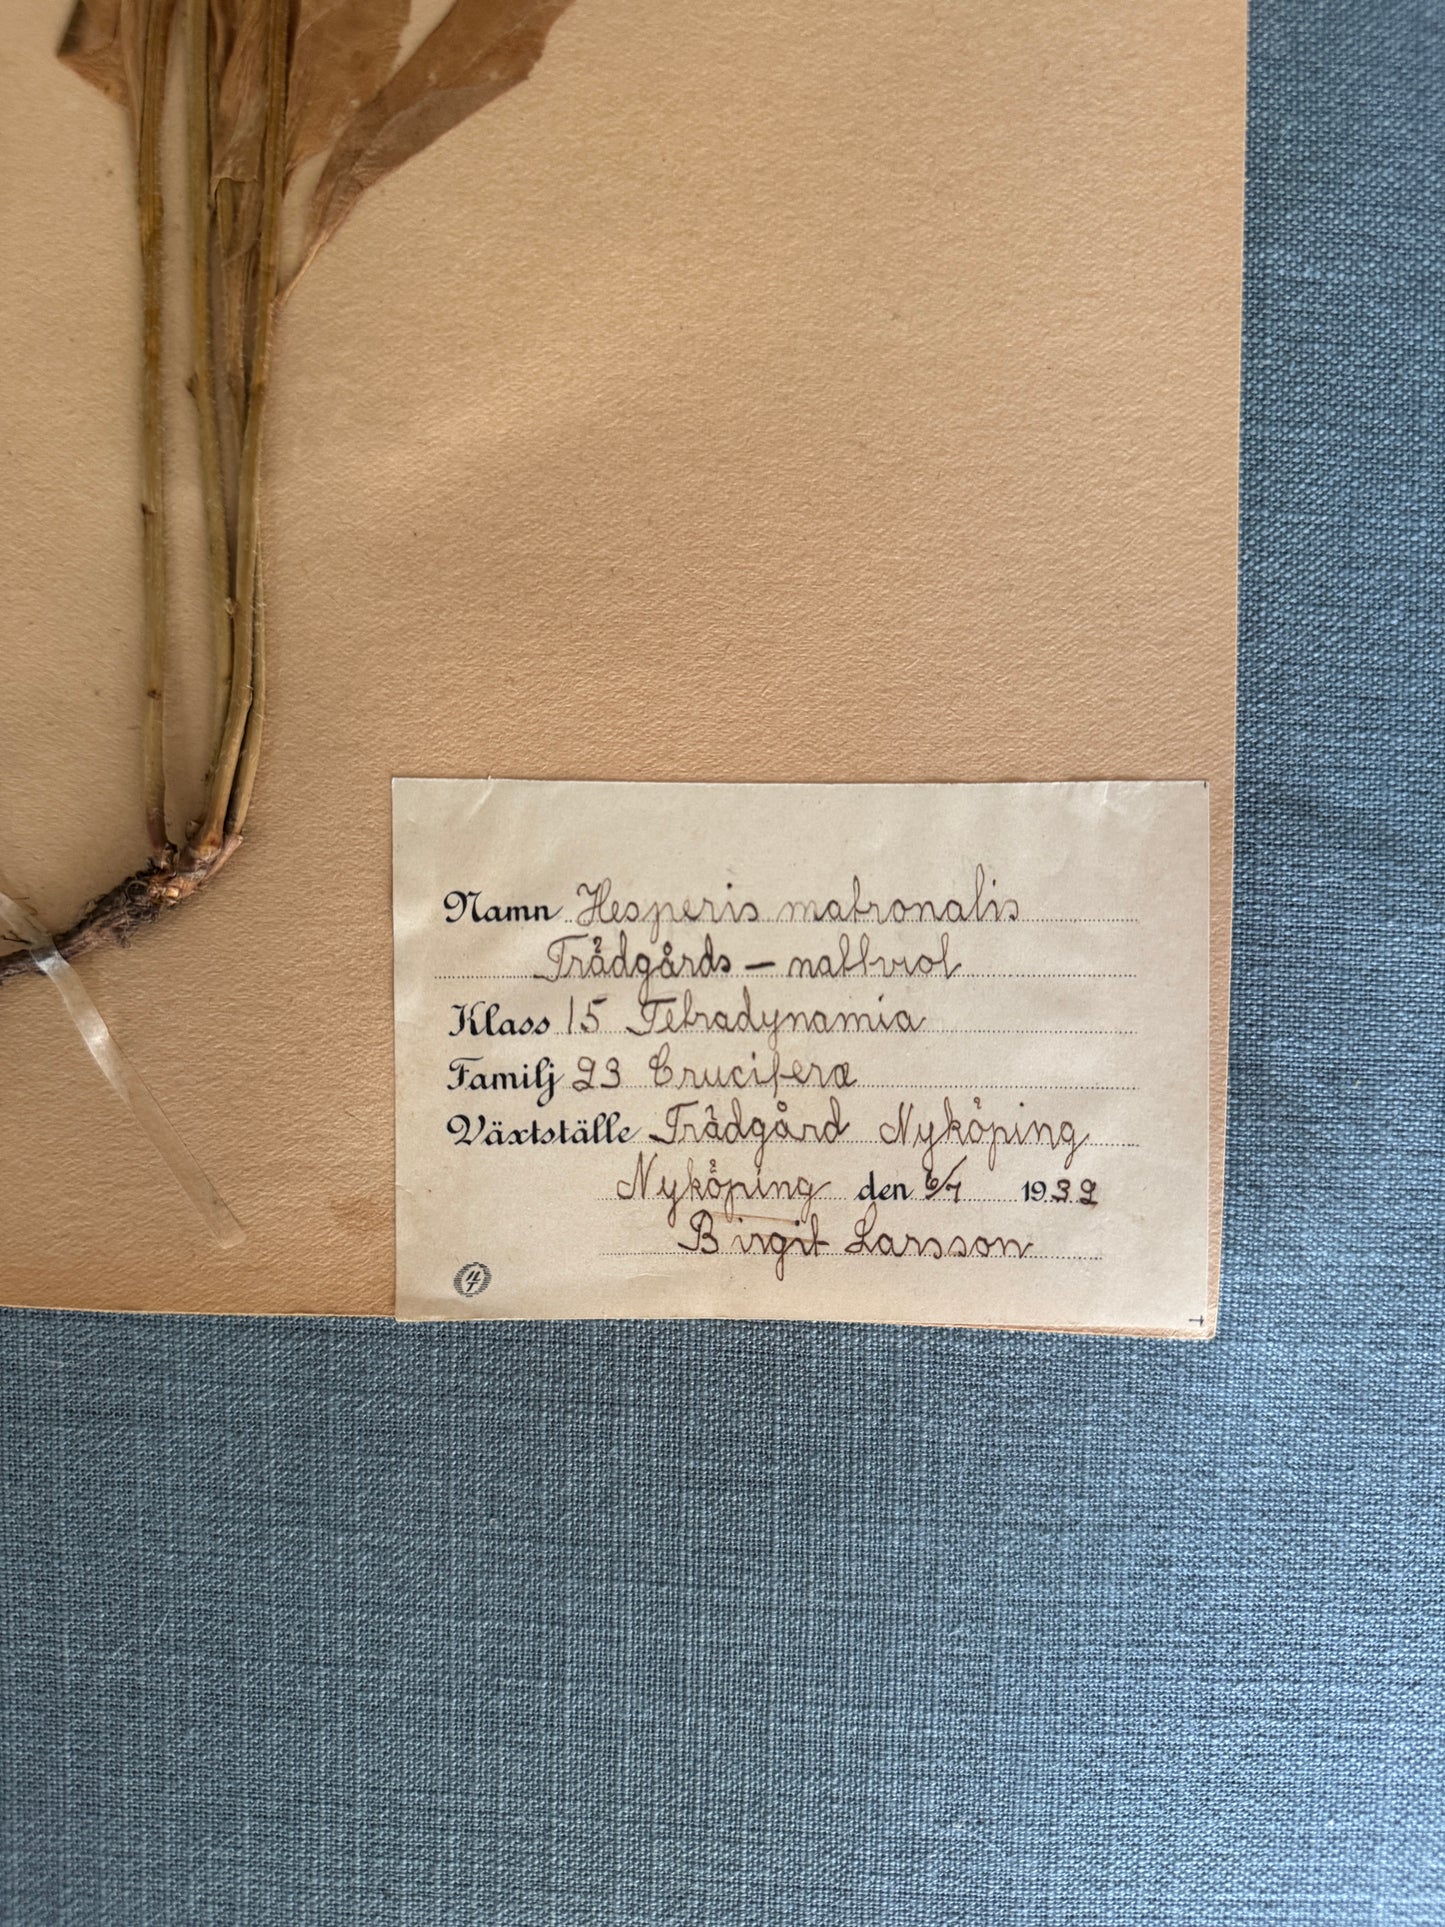 Namn Hesperis matronalis
Trädgårds – nattviol
Klass 15 Tetradynamia
Familj 23 Cruciferæ
Växtställe Trädgård Nyköping
Nyköping den 6/7 1939
Birgit Larsson